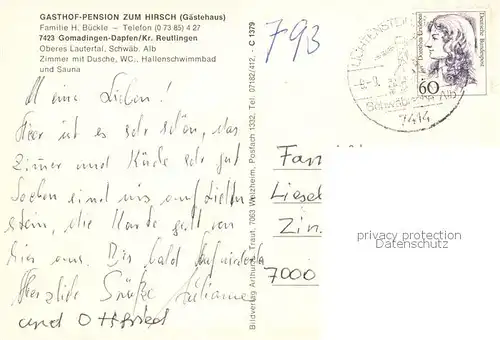 GASTHOF-PENSION ZUM HIRSCH (Gästehaus)
Familie H. Bückle – Telefon (0 73 85) 4 27
7423 Gomadingen-Dapfen/Kr. Reutlingen
Oberes Lautertal, Schwäb. Alb
Zimmer mit Dusche, WC., Hallenschwimmbad
und Sauna
Meine Lieben!
Hier ist es sehr schön, das
Zimmer und Küche sehr gut
Soeben sind wir auf Lichten
stein, die Karte geht von
hier aus. Bis bald Aufwiedersehn
Herzliche Grüße Juliane
und Ottfried
Bildverlag Arthur Traut, 7063 Welzheim, Postfach 1332, Tel. 07182/412, · C 1379
793
LICHTENSTEIN
Schwäbische Alb
7414
Deutsche Bundespost
Dorothea Erxleben
60
Fam
Liesel
Zin
7000
privacy protection
Datenschutz